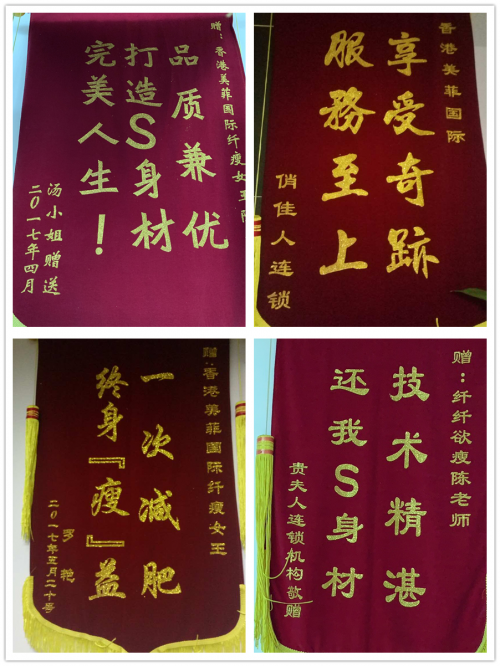 赠：香港美菲国际纤瘦女王陈
品质兼优
打造S身材
完美人生！
汤小姐赠送
二〇一七年四月
香港美菲国际
享受奇跡
服務至上
俏佳人连锁
赠：香港美菲国际纤瘦女王
一次减肥
终身『瘦』益
罗艳
二〇一七年五月二十号
赠：纤纤欲瘦陈老师
技术精湛
还我S身材
贵夫人连锁机构敬赠